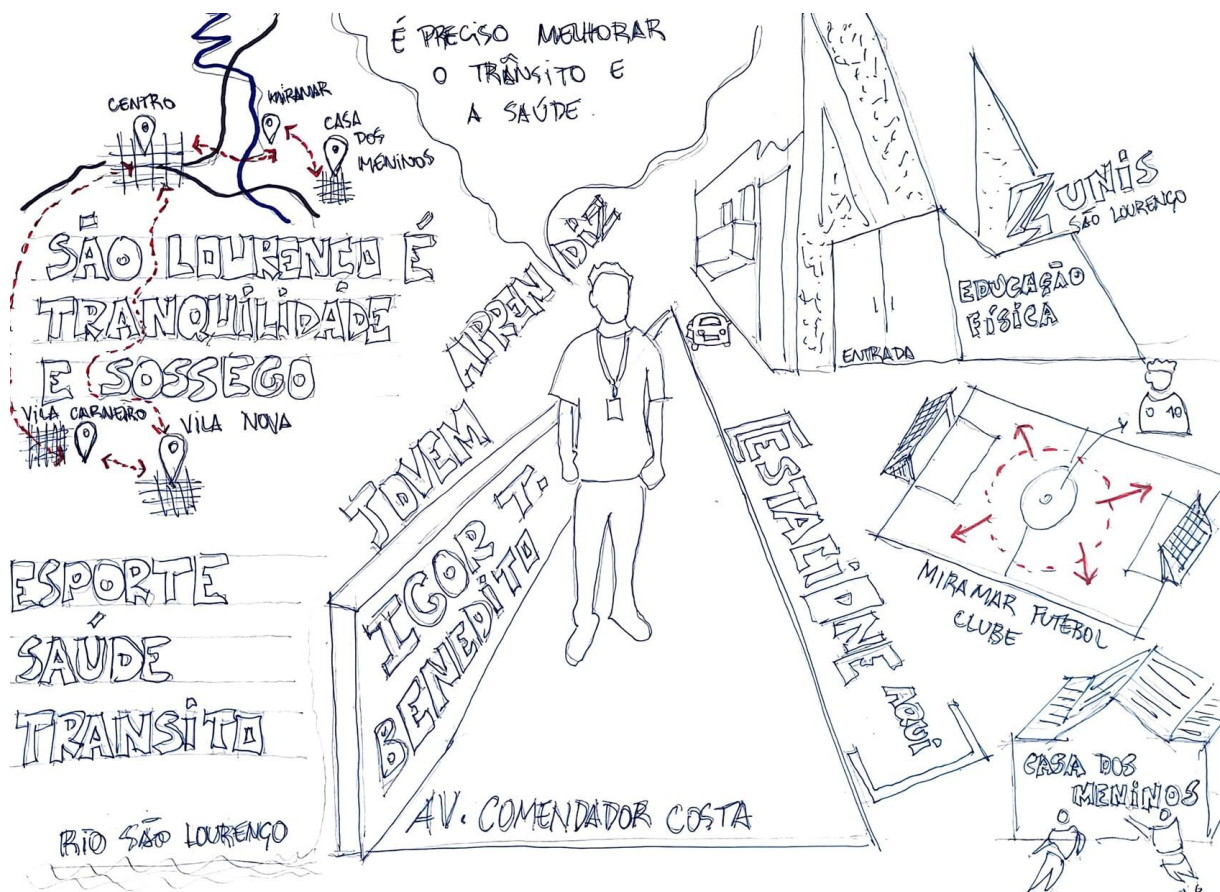 É PRECISO MELHORAR
O TRÂNSITO E
A SAÚDE.
CENTRO
MIRAMAR
CASA
DOS
MENINOS
SÃO LOURENÇO É
TRANQUILIDADE
E SOSSEGO
VILA CARNEIRO
VILA NOVA
ESPORTE
SAÚDE
TRANSITO
RIO SÃO LOURENÇO
JOVEM APRENDIZ
IGOR T.
BENEDITO
AV. COMENDADOR COSTA
ESTACIONE AQUI
UNIS
SÃO LOURENÇO
EDUCAÇÃO
FÍSICA
ENTRADA
10
MIRAMAR FUTEBOL
CLUBE
CASA DOS
MENINOS